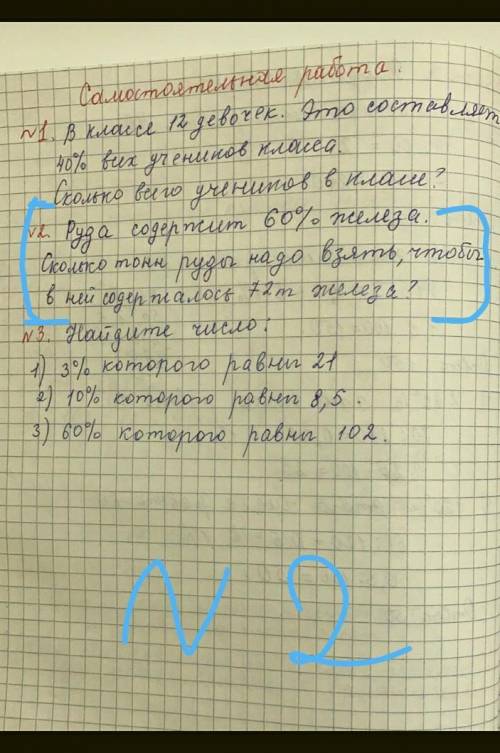 Самостоятельная работа.
№1. В классе 12 девочек. Это составляет
40% всех учеников класса.
Сколько всего учеников в классе?
№2. Руда содержит 60% железа.
Сколько тонн руды надо взять, чтобы
в ней содержалось 72т железа?
№3. Найдите число:
1) 3% которого равны 21
2) 10% которого равны 8,5.
3) 60% которого равны 102.
N 2